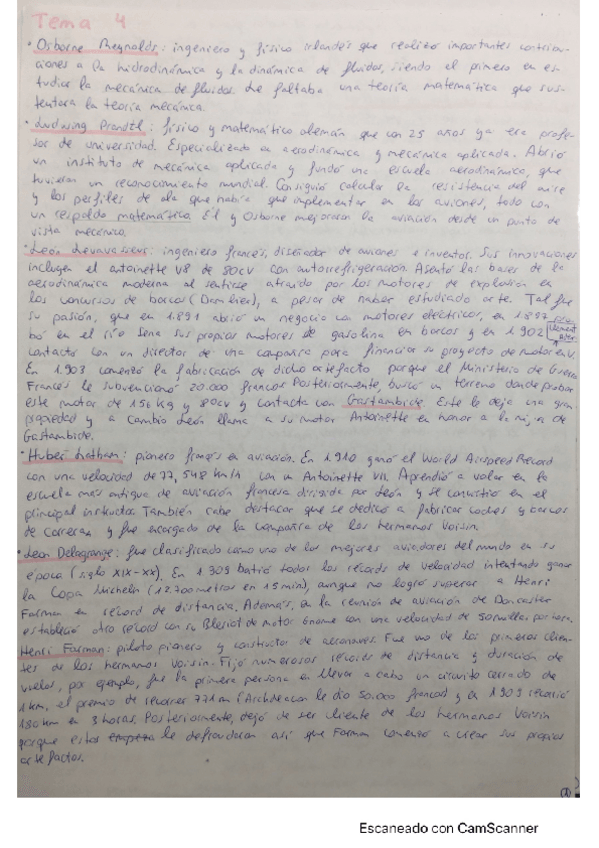 Tema 4
• Osborne Reynolds: ingeniero y físico irlandés que realizó importantes contribu-
ciones a la hidrodinámica y la dinámica de fluidos, siendo el primero en es-
tudiar la mecánica de fluidos. Le faltaba una teoría matemática que sus-
tentara la teoría mecánica.
• Ludwing Prandtl: físico y matemático alemán que con 25 años ya era profe-
sor de universidad. Especializado en aerodinámica y mecánica aplicada. Abrió
un instituto de mecánica aplicada y fundó una escuela aerodinámica, que
tuvieron un reconocimiento mundial. Consiguió calcular la resistencia del aire
y los perfiles de ala que había que implementar en los aviones, todo con
un respaldo matemático. Él y Osborne mejoraron la aviación desde un punto de
vista mecánico.
• León Levavasseur: ingeniero francés, diseñador de aviones e inventor. Sus innovaciones
incluyen el antoinette V8 de 80cv con autorrefrigeración. Asentó las bases de la
aerodinámica moderna al sentirse atraído por los motores de explosión en
los concursos de barcos (Dambier), a pesar de haber estudiado arte. Tal fue
su pasión, que en 1.891 abrió un negocio con motores eléctricos, en 1.897 pro-
bó en el río Sena sus propios motores de gasolina en barcos y en 1.902
contactó con un director de una compañía para financiar su proyecto de motor en V.
En 1.903 comenzó la fabricación de dicho artefacto porque el Ministerio de Guerra
Francés le subvencionó 20.000 francos. Posteriormente, buscó un terreno donde probar
este motor de 156 kg y 80cv y contacta con Gastambide. Este le deja una gran
propiedad y a cambio León llama a su motor Antoinette en honor a la hija de
Gastambide.
• Huber Latham: pionero francés en aviación. En 1.910 ganó el World Airspeed Record
con una velocidad de 77,548 km/h con un Antoinette VII. Aprendió a volar en la
escuela más antigua de aviación francesa dirigida por León y se convirtió en el
principal instructor. También cabe destacar que se dedicó a fabricar coches y barcos
de carreras y fue encargado de la compañía de los hermanos Voisin.
• Leon Delagrange: fue clasificado como uno de los mejores aviadores del mundo en su
época (siglo XIX-XX). En 1.909 batió todos los récords de velocidad intentando ganar
la Copa Michelin (12.700 metros en 15 min), aunque no logró superar a Henri
Farman en récord de distancia. Además, en la reunión de aviación de Doncaster
estableció otro récord con su Bleriot de motor Gnome con una velocidad de 50 millas por hora.
Henri Farman: piloto pionero y constructor de aeronaves. Fue uno de los primeros clien-
tes de los hermanos Voisin. Fijó numerosos récords de distancia y duración de
vuelos, por ejemplo, fue la primera persona en llevar a cabo un circuito cerrado de
1km, el premio de recorrer 771m (Archdeacon le dio 50.000 francos y en 1.909 recorrió
180km en 3 horas. Posteriormente, dejó de ser cliente de los hermanos Voisin
porque estos le defraudaron así que Farman comenzó a crear sus propios
artefactos.
Escaneado con CamScanner